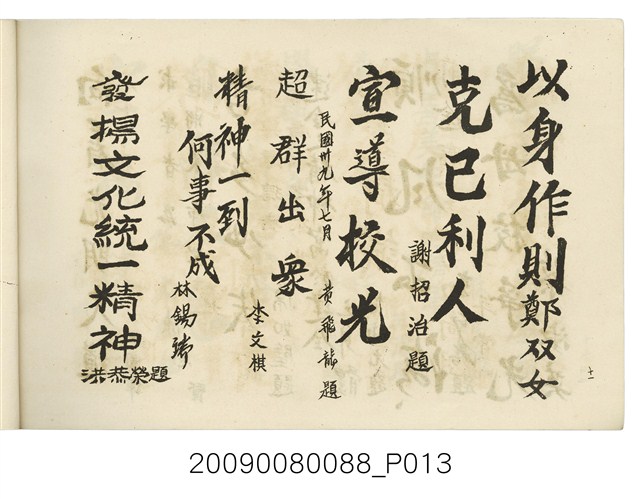 以身作則 鄭双女
克己利人
謝招治題
宣導校光
民國卅九年七月 黄飛龍題
超群出衆
李文棋
精神一到
何事不成
林錫
發揚文化統一精神
洪恭榮題
十一
20090080088_P013